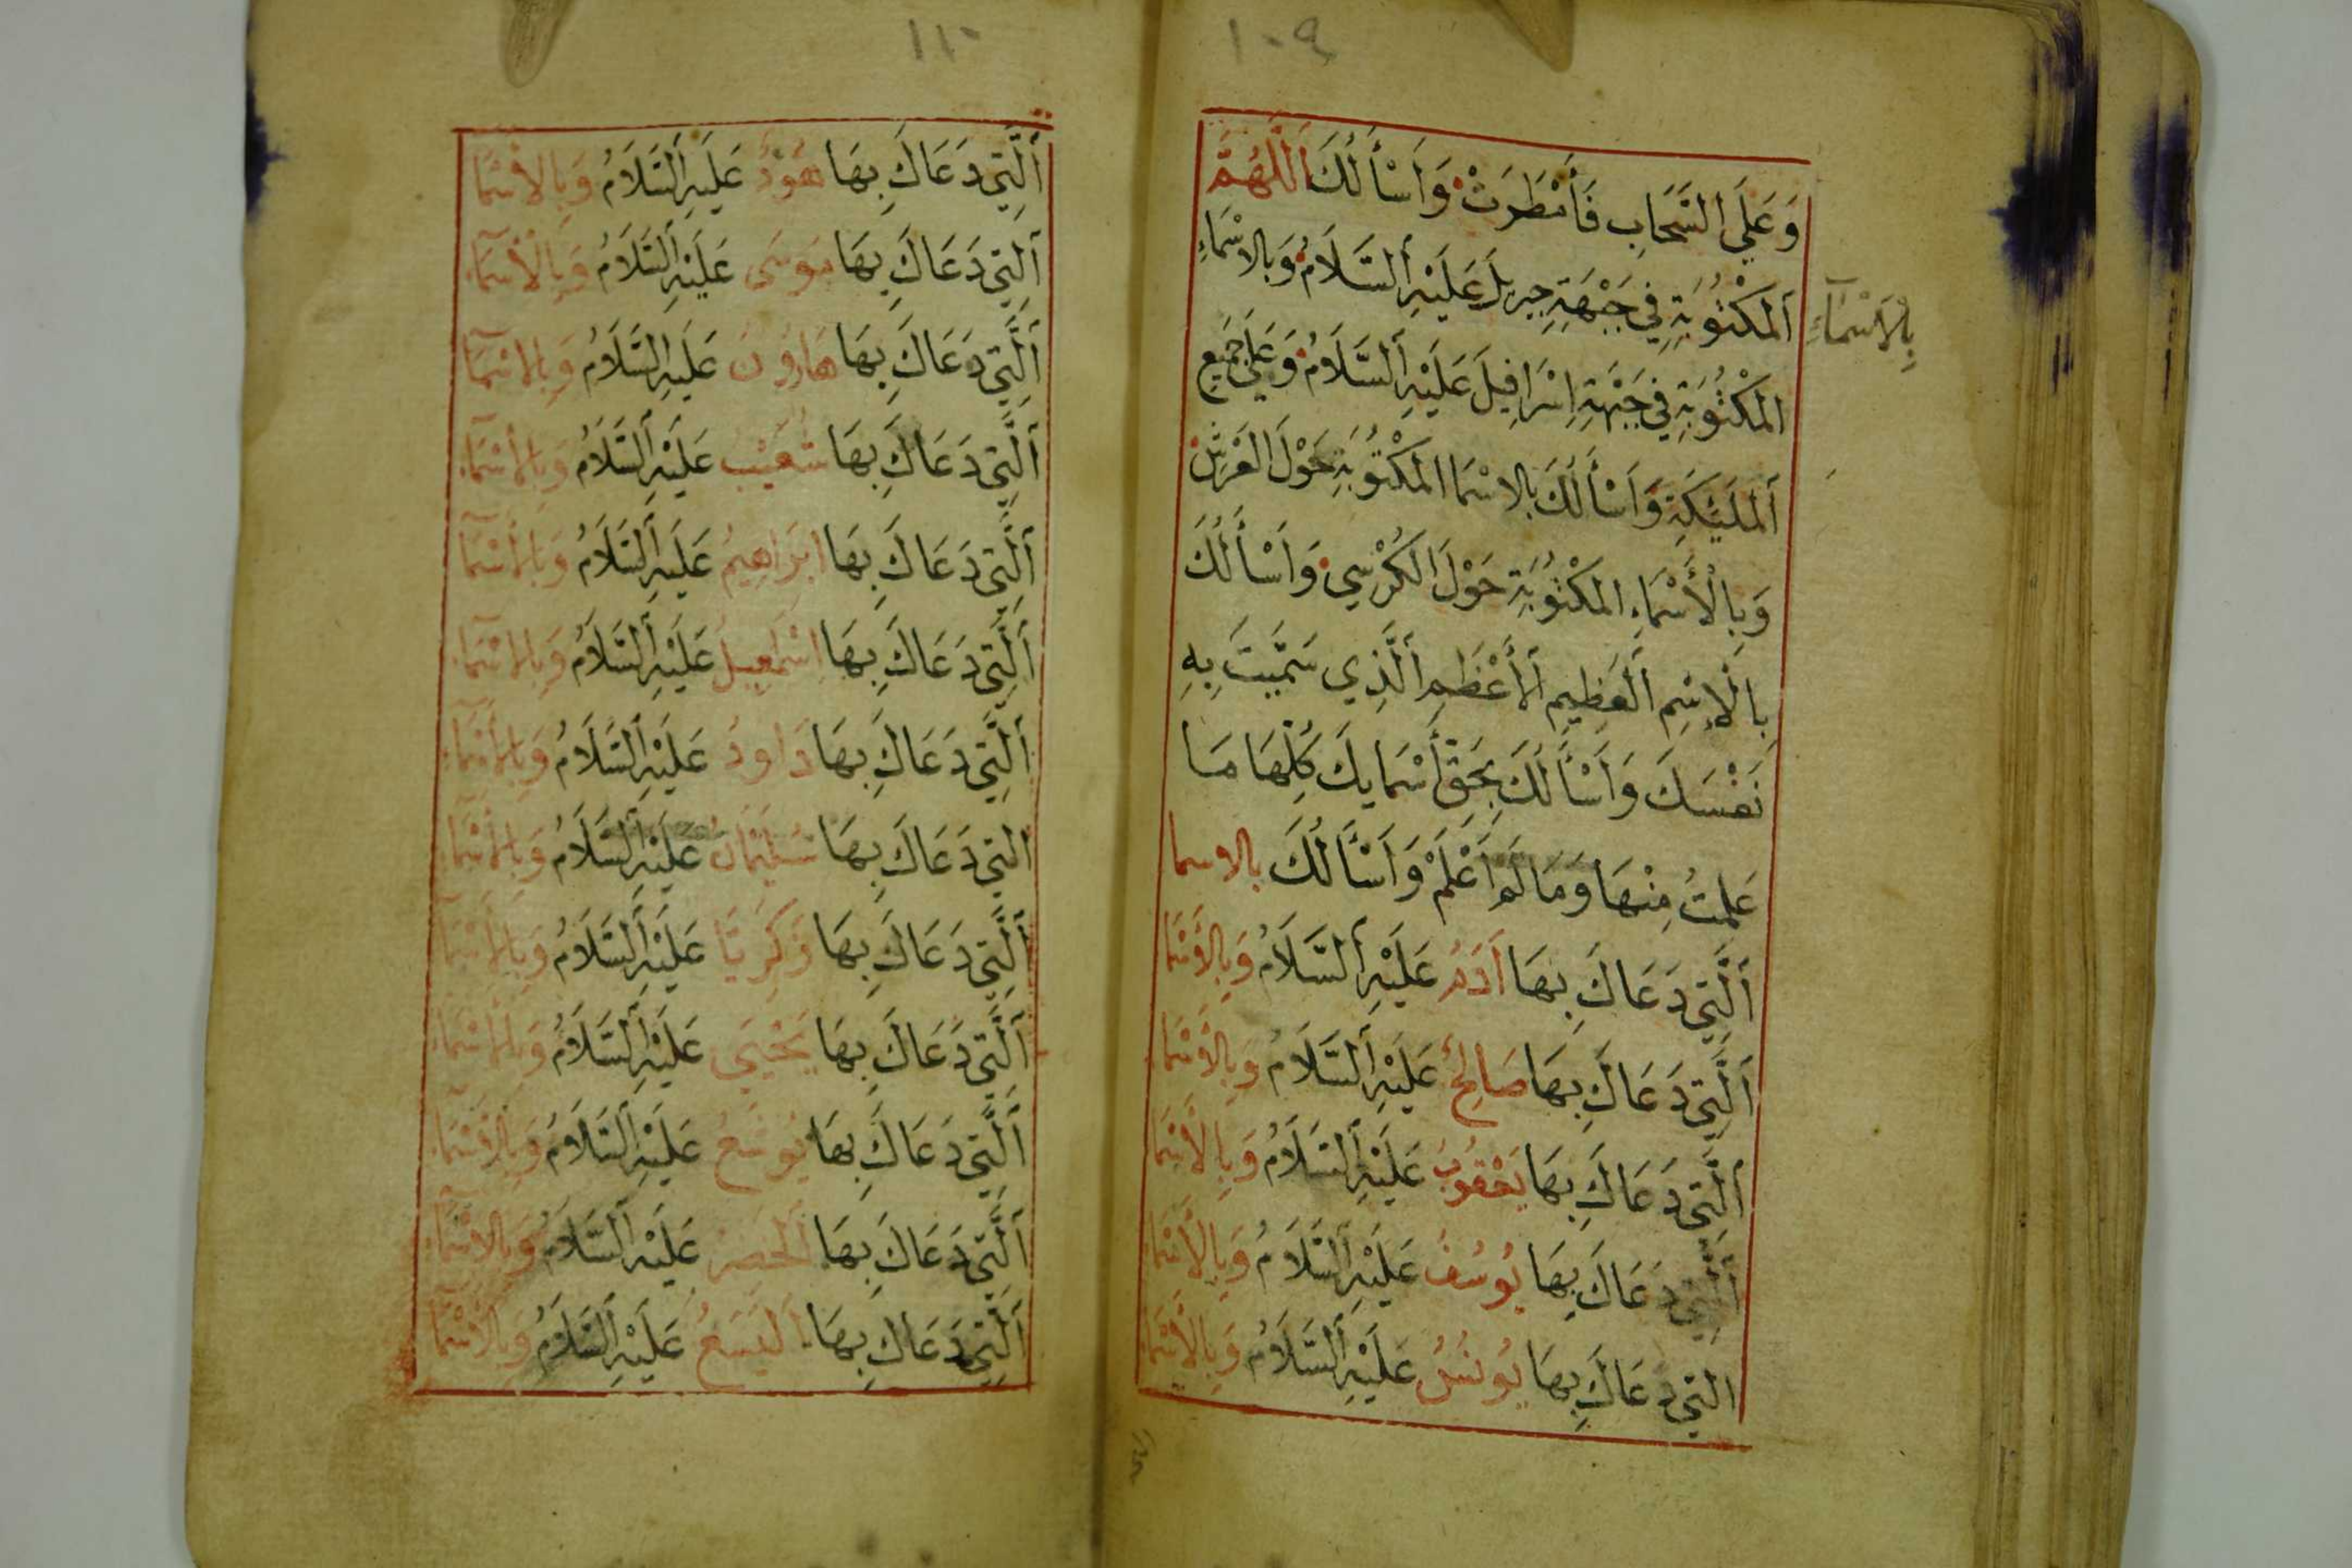 ١٠٩
وَعَلَى السَّحَابِ فَأَمْطَرَتْ وَاَسْأَلُكَ اَللّٰهُمَّ
بِالْاَسْمَآءِ
اَلْمَكْتُوبَةِ فِي جَبْهَةِ جبريلَ عَلَيْهِ اَلسَّلَامُ وَبالاسْمَاءِ
المَكْتُوبَةِ فِي جَبْهَةِ اِسْرَافِيلَ عَلَيْهِ اَلسَّلَامُ وَعَلَى جَمِيعِ
اَلمَلَئِكَةِ وَاَسْأَلُكَ بالاسْمَا المَكْتُوبَةِ حَوْلَ العَرْشِ
وَبِالْأَسْمَاءِ المَكْتُوبَةِ حَوْلَ الكُرْسِي وَاَسْأَلُكَ
بِالْإِسْمِ اَلْعَظِيمِ اَلأَعْظَمِ اَلَّذِي سَمَّيتَ بِهِ
نَفْسَكَ وَاَسْأَلُكَ بِحَقِّ أَسْمَايكَ كُلِّهَا مَا
عَلِمتُ مِنْهَا وَمَا لَم اَعْلَمْ وَاَسْأَلُكَ بالاسما
اَلَّتِي دَعَاكَ بِهَا اَدَمُ عَلَيْهِ اَلسَّلَامُ وَبِالأَسْمَا
اَلَّتِي دَعَاكَ بِهَا صَالِحُ عَلَيْهِ اَلسَّلَامُ وَبِالأَسْمَا
اَلَّتِي دَعَاكَ بِهَا يَعْقُوبُ عَلَيْهِ اَلسَّلَامُ وَبِالْأَسْمَا
اَلَّتِي دَعَاكَ بِهَا يُوسُفُ عَلَيْهِ اَلسَّلَامُ وَبِالْأَسْمَا
التِي دَعَاكَ بِهَا يُونُسُ عَلَيْهِ اَلسَّلَامُ وَبِالْأَسْمَا
١١٠
اَلَّتِي دَعَاكَ بِهَا هُوْدُ عَلَيهِ اَلسَّلَامُ وَبِالأَسْمَا
اَلتِي دَعَاكَ بِهَا مُوسَى عَلَيْهِ اَلسَّلَامُ وَبِالْأَسْمَآءِ
اَلَّتِي دَعَاكَ بِهَا هَارُونَ عَلَيهِ السَّلَامُ وَبِالاسْمَآ
اَلَّتِي دَعَاكَ بِهَا شُعَيْب عَلَيْهِ اَلسَّلَامُ وَبِالأَسْمَآءِ
اَلَّتِي دَعَاكَ بِهَا ابْرَاهِيمُ عَلَيهِ اَلسَّلَامُ وَبِالأَسْمَآ
اَلَّتِي دَعَاكَ بِهَا اِسْمَعِيلُ عَلَيْهِ اَلسَّلَامُ وَبِالاسْمَآءِ
اَلَّتِي دَعَاكَ بِهَا دَاودُ عَلَيْهِ اَلسَّلَامُ وَبِالأَسْمَآءِ
التِي دَعَاكَ بِهَا سُلَيْمَانُ عَلَيْهِ اَلسَّلَامُ وَبِالأَسْمَآءِ
اَلَّتِي دَعَاكَ بِهَا زَكَرِيَّا عَلَيْهِ اَلسَّلَامُ وَبِالأَسْمَآ
اَلَّتِي دَعَاكَ بِهَا يَحْيَى عَلَيْهِ اَلسَّلَامُ وَبِالأَسْمَآءِ
اَلَّتِي دَعَاكَ بِهَا يُوشَعُ عَلَيْهِ اَلسَّلَامُ وَبِالأَسْمَآءِ
اَلَّتِي دَعَاكَ بِهَا اَلْخَضِرُ عَلَيْهِ اَلسَّلَامُ وَبِالاسْمَآءِ
اَلَّتِي دَعَاكَ بِهَا اَليَسَعُ عَلَيْهِ اَلسَّلَامُ وَبِالاسْمَآ